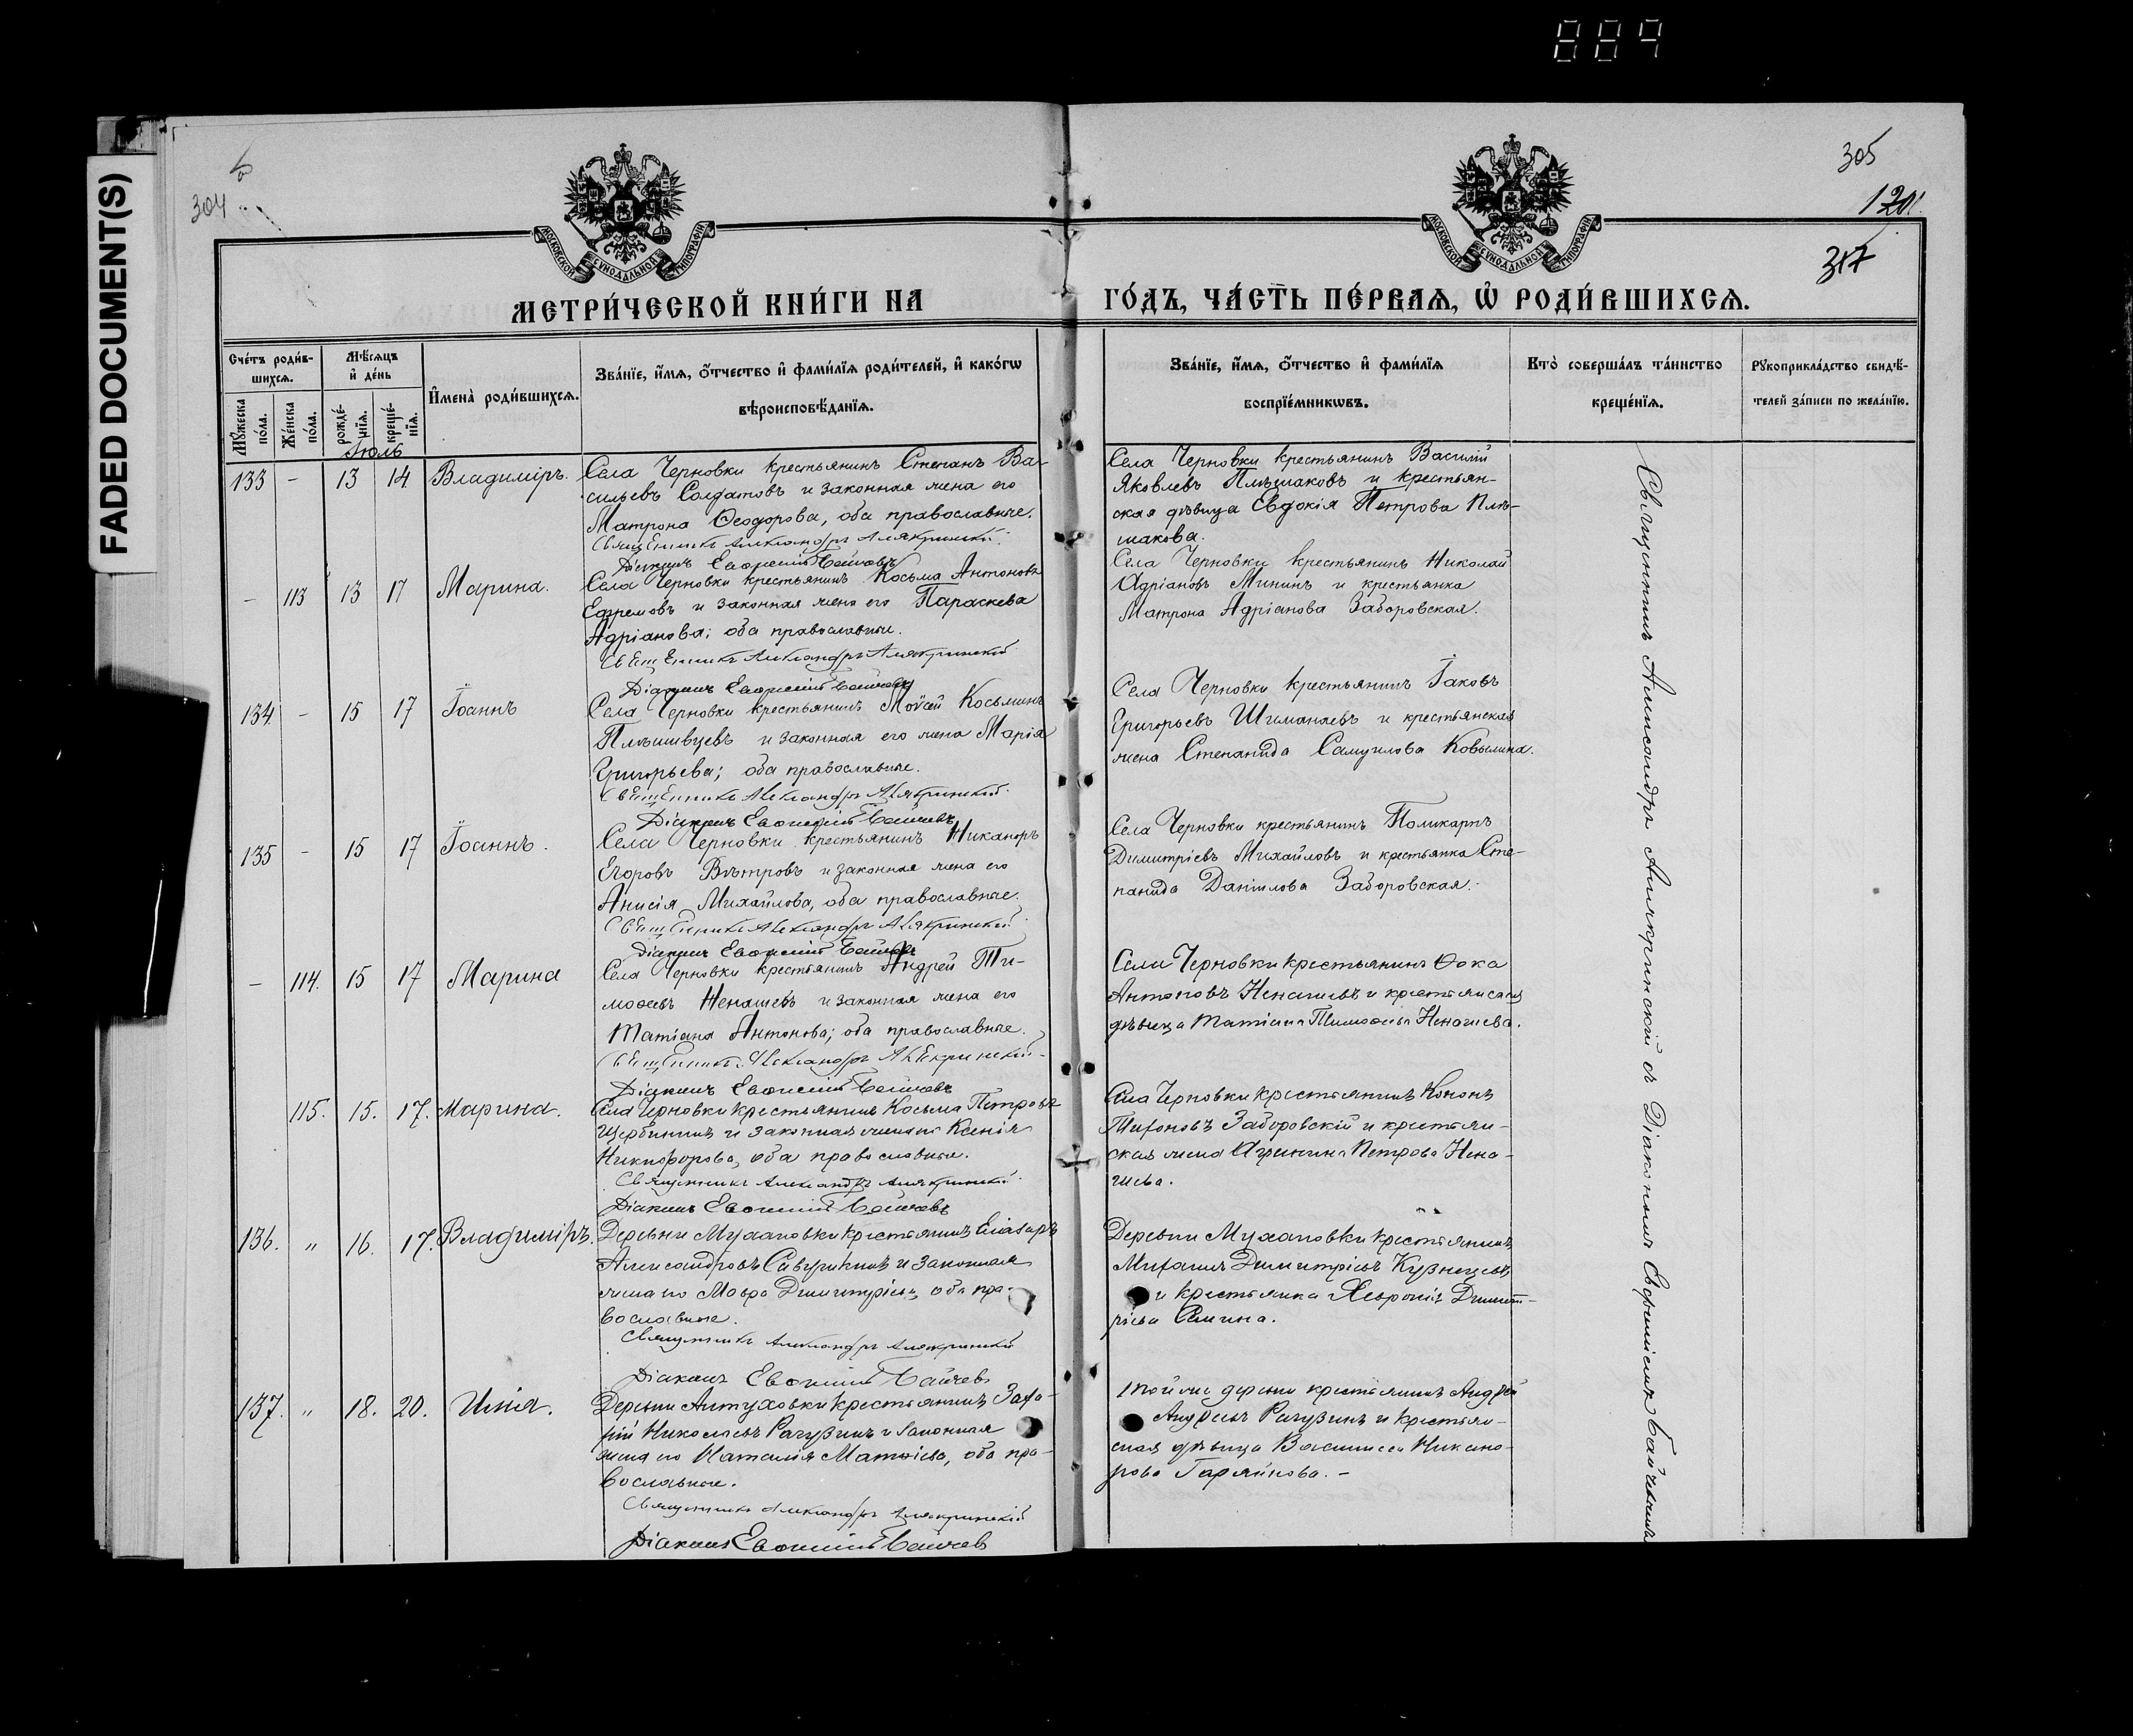 889
FADED DOCUMENT(S)
304
305
120
317
МОСКОВСКОЙ СѴНОДАЛЬНОЙ ТИПОГРАФІИ
МОСКОВСКОЙ СѴНОДАЛЬНОЙ ТИПОГРАФІИ
МЕТРИ́ЧЕСКОЙ КНИ́ГИ НА
ГО́ДЪ, ЧА́СТЬ ПЕ́РВАѦ, Ѡ҆ РОДИ́ВШИХСѦ.
Сче́тъ роди́в-
шихсѧ.
Мѣ́сѧцъ
и҆ де́нь
И҆мена̀ роди́вшихсѧ.
Зва́нїе, и҆́мѧ, ѻ҆́тчество и҆ фами́лїѧ роди́телей, и҆ како́гѡ
вѣроисповѣ́данїѧ.
Мꙋ́жеска
по́ла.
Же́нска
по́ла.
рожде́-
нїѧ.
креще́-
нїѧ.
Зва́нїе, и҆́мѧ, ѻ҆́тчество и҆ фами́лїѧ
воспрїе́мникѡвъ.
Кто̀ соверша́лъ та́инство
креще́нїѧ.
Рꙋкоприкла́дство свидѣ́-
телей за́писи по жела́нїю.
Іюль
133 - 13 14 Владиміръ. Села Черновки крестьянинъ Степанъ Ва-
сильевъ Солдатовъ и законная жена его
Матрона Ѳеодорова, оба православные.
Священникъ Александръ Алякринскій.
Діаконъ Евѳимій Байчевъ
Села Черновки крестьянинъ Василій
Яковлевъ Плѣшаковъ и крестьян-
ская дѣвица Евдокія Петрова Плѣ-
шакова.
- 113 13 17 Марина. Села Черновки крестьянинъ Косьма Антоновъ
Ефремовъ и законная жена его Параскева
Адріанова; оба православные.
Священникъ Александръ Алякринскій
Діаконъ Евѳимій Байчевъ
Села Черновки крестьянинъ Николай
Адріановъ Мининъ и крестьянка
Матрона Адріанова Заборовская.
134 - 15 17 Іоаннъ Села Черновки крестьянинъ Моѵсей Косьминъ
Плѣшивцевъ и законная его жена Марія
Григорьева; оба православные.
Священникъ Александръ Алякринскій.
Діаконъ Евѳимій Байчевъ
Села Черновки крестьянинъ Іаковъ
Григорьевъ Шиманаевъ и крестьянская
жена Степанида Самуилова Ковылина.
135 - 15 17 Іоаннъ. Села Черновки крестьянинъ Никаноръ
Егоровъ Вѣтровъ и законная жена его
Анисія Михайлова, оба православные.
Священникъ Александръ Алякринскій
Діаконъ Евѳимій Байчевъ
Села Черновки крестьянинъ Поликарпъ
Димитріевъ Михайловъ и крестьянка Сте-
панида Даніилова Заборовская.
- 114. 15 17 Марина Села Черновки крестьянинъ Андрей Ти-
моѳеевъ Ненашевъ и законная жена его
Татіана Антонова; оба православные.
Священникъ Александръ Алякринскій
Діаконъ Евѳимій Байчевъ
Села Черновки крестьянинъ Ѳока
Антоновъ Ненашевъ и крестьянская
дѣвица Татіана Тимоѳеева Ненашева.
115. 15. 17. Марина. Села Черновки крестьянинъ Косьма Петровъ
Щербининъ и законная жена его Ксенія
Никифорова, оба православные.
Священникъ Александръ Алякринскій
Діаконъ Евѳимій Байчевъ
Села Черновки крестьянинъ Кононъ
Тихоновъ Заборовскій и крестьян-
ская жена Агрипина Петрова Нена-
шева.
136. " 16. 17. Владиміръ. Деревни Мухановки крестьянинъ Еліазаръ
Александровъ и законная
жена его Мавра Димитріева, оба пра-
вославные.
Священникъ Александръ Алякринскій
Діаконъ Евѳимій Байчевъ
Деревни Мухановки крестьянинъ
Михаилъ Димитріевъ Кузнецовъ
и крестьянка Хевронія Димит-
ріева Самина.
137. " 18. 20. Илія. Деревни Антуховки крестьянинъ Заха-
рій Николаевъ Рагузинъ и законная
жена его Наталія Матѳіева, оба пра-
вославные.
Священникъ Александръ Алякринскій
Діаконъ Евѳимій Байчевъ
Той же деревни крестьянинъ Андрей
Андреевъ Рагузинъ и крестьян-
ская дѣвица Василисса Никано-
рова. -
Священникъ Александръ Алякринскій съ Діакономъ Евѳиміемъ Байчевымъ